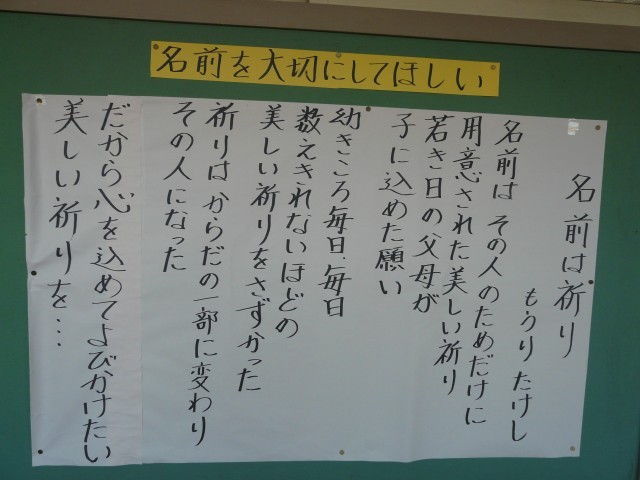 名前を大切にしてほしい
名前は祈り
もうり たけし
名前は その人のためだけに
用意された美しい祈り
若き日の父母が
子に込めた願い
幼きころ毎日、毎日
数えきれないほどの
美しい祈りをさずかった
祈りは からだの一部に変わり
その人になった
だから心を込めてよびかけたい
美しい祈りを…